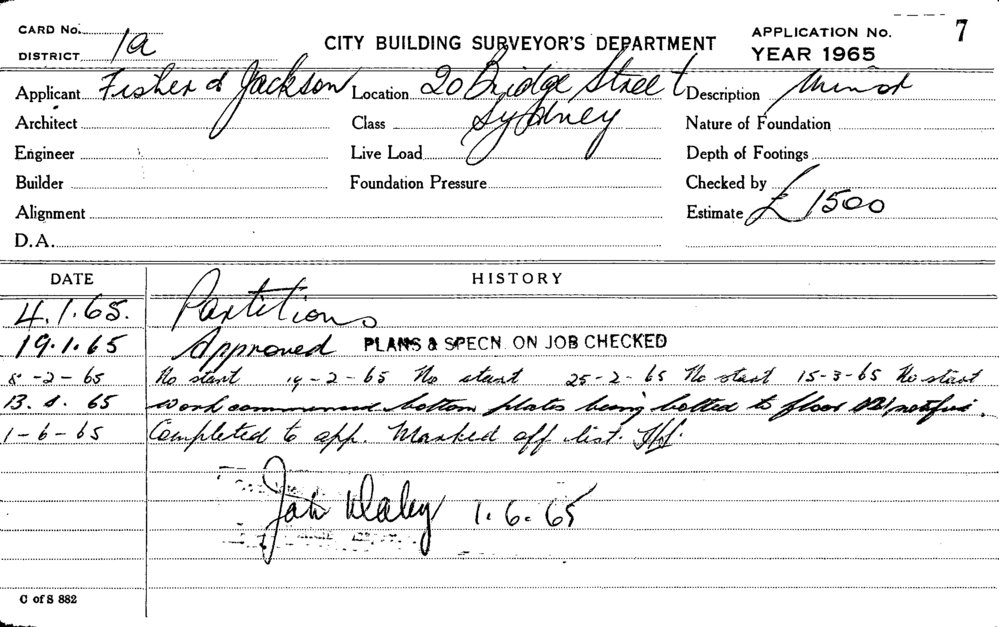 CARD No. 1a
DISTRICT
CITY BUILDING SURVEYOR'S DEPARTMENT
APPLICATION No. 7
YEAR 1965
Applicant Fisher & Jackson Location 20 Bridge Street Description Minor
Architect Class Sydney Nature of Foundation
Engineer Live Load Depth of Footings
Builder Foundation Pressure Checked by
Alignment Estimate £1500
D.A.
DATE HISTORY
4.1.65. Partitions
19.1.65 Approved PLANS & SPECN. ON JOB CHECKED
8-2-65 No start 14-2-65 No start 25-2-65 No start 15-3-65 No start
13. 65 work commenced bottom plates being bolted to floor
1-6-65 Completed to app. Marked off list.
Daley 1.6.65
C of S 882